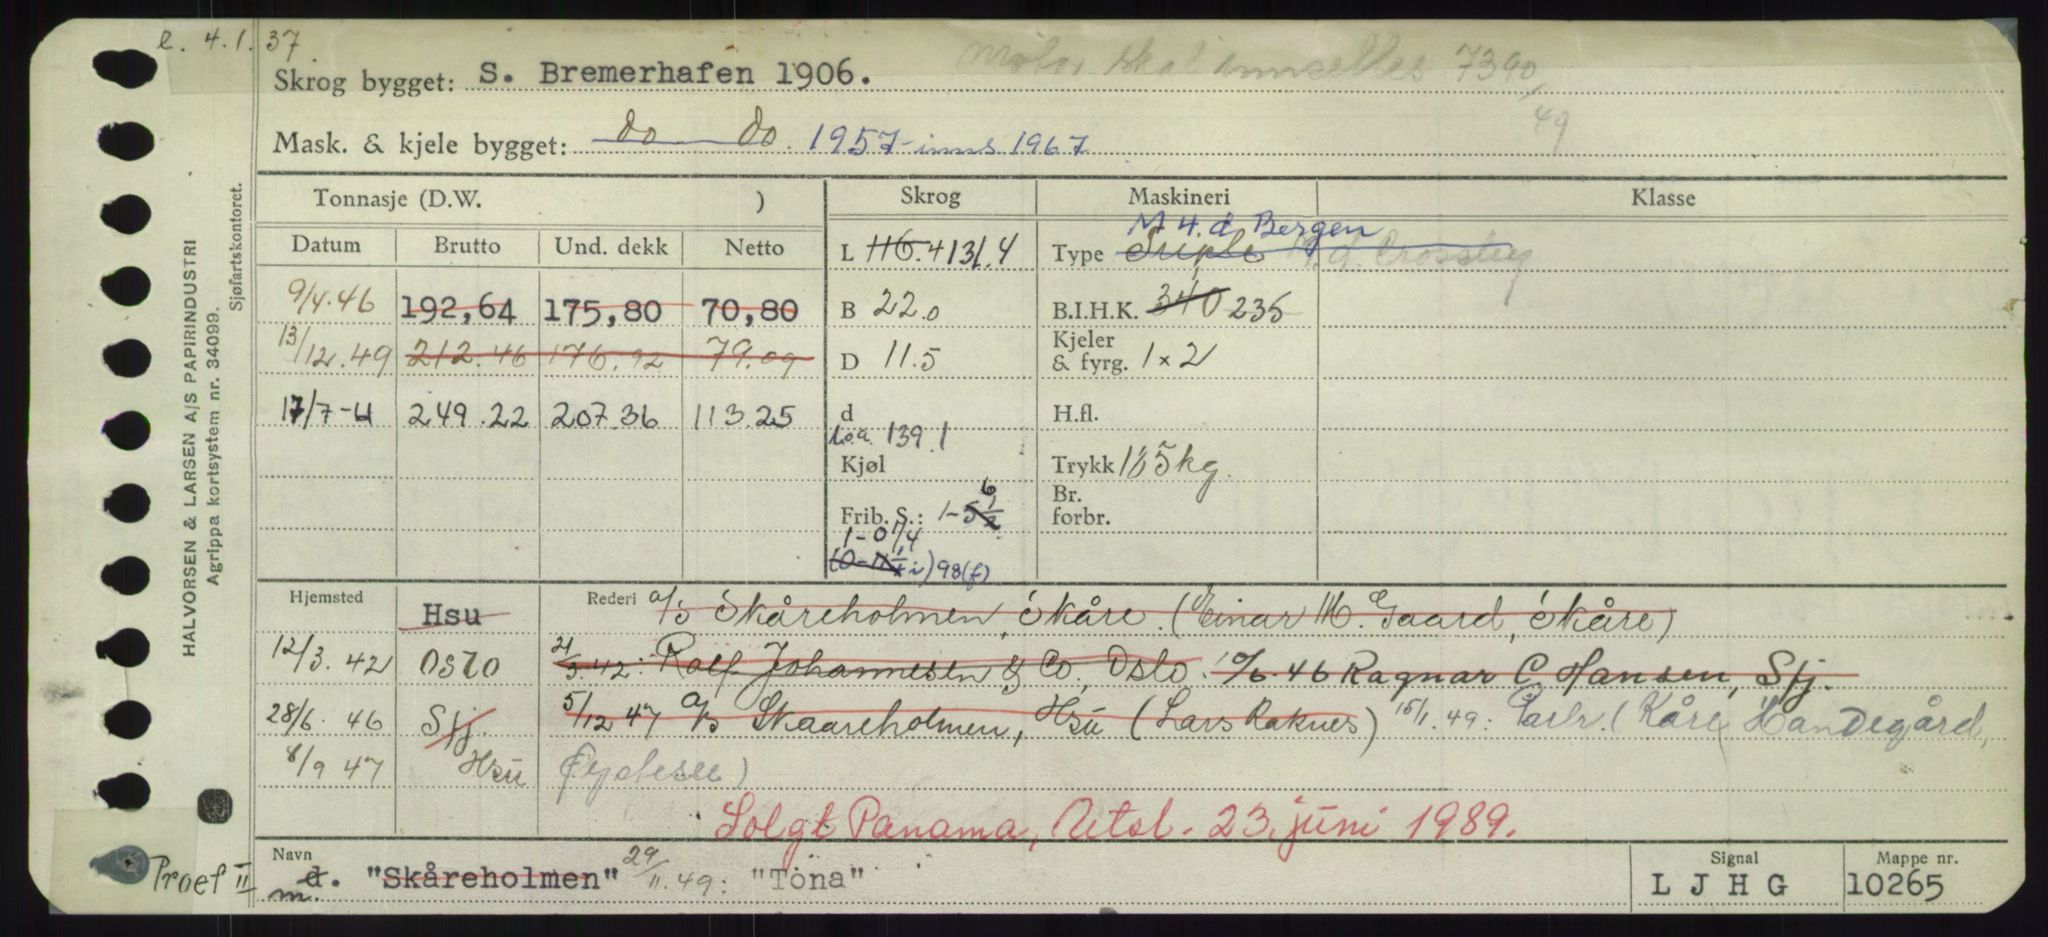 e. 4.1.37
Motor skal innsettes 7390/49
Skrog bygget: S. Bremerhafen 1906.
Mask. & kjele bygget: do do. 1957 - inns 1967
Tonnasje (D.W. ) Skrog Maskineri Klasse
M 4. d Bergen
Datum Brutto Und. dekk Netto L 116.4 131.4 Type Triple M. d. Crossley
9/4.46 192,64 175,80 70,80 B 22.0 B.I.H.K. 340 235
13/12.49 212.46 176.92 79.09 D 11.5 Kjeler & fyrg. 1 x 2
17/7-61 249.22 207.36 113.25 d H.fl.
Loa. 139.1
Kjøl Trykk 185 kg.
Frib. S.: 1-5 1/2 6 Br. forbr.
1-0 1/4
98(f)
Hjemsted Hsu Rederi a/s Skåreholmen, Skåre. (Einar M. Gaard, Skåre)
12/3.42 Oslo 21/3.42: Rolf Johannesen & Co, Oslo. 10/6.46 Ragnar C Hansen, Sfj.
28/6.46 Sfj. 5/12 47 a/s Skaareholmen, Hsu (Lars Raknes) 15/1.49: Partr. (Kåre Handegård,
8/9 47 Hsu
Solgt Panama, Utsl. 23. juni 1989.
Navn d. "Skåreholmen" 29/11.49: "Töna" Signal LJHG Mappe nr. 10265
m.
Proef II
HALVORSEN & LARSEN A/S PAPIRINDUSTRI
Agrippa kortsystem nr. 34099.
Sjøfartskontoret.